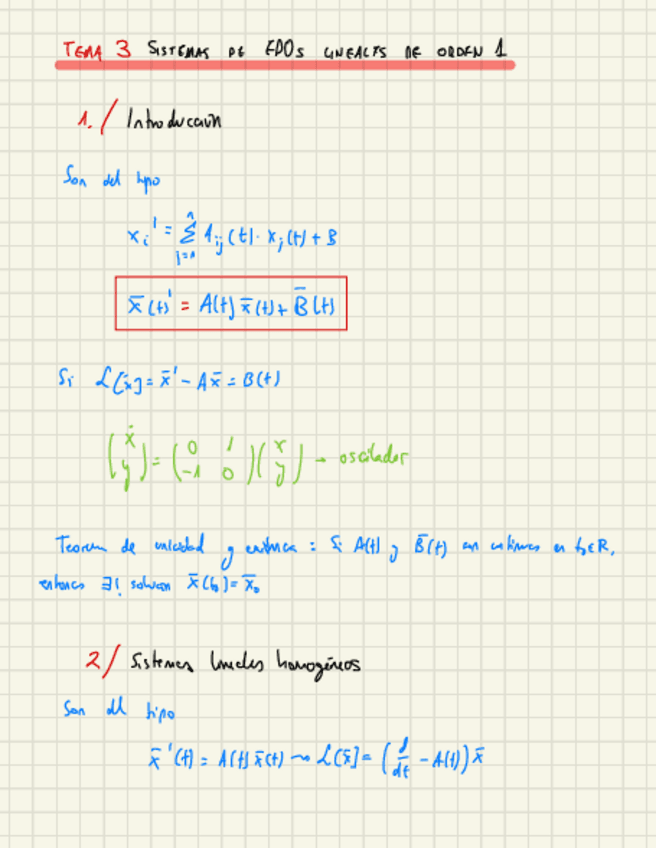 TEMA 3 SISTEMAS DE EDOs LINEALES DE ORDEN 1
1./ Introducción
Son del tipo
xᵢ' = Σⱼ₌₁ⁿ Aᵢⱼ(t)·xⱼ(t) + B
x̄(t)' = A(t) x̄(t) + B̄(t)
Si L[x̄] = x̄' - Ax̄ = B(t)
(ẋ ẏ) = (0 1 -1 0)(x y) → oscilador
Teorema de unicidad y existencia : Si A(t) y B̄(t) son continuas en t₀∈R,
entonces ∃! solución x̄(t₀) = x̄₀
2/ Sistemas lineales homogéneos
Son del tipo
x̄'(t) = A(t) x̄(t) ⇝ L[x̄] = (d/dt - A(t)) x̄